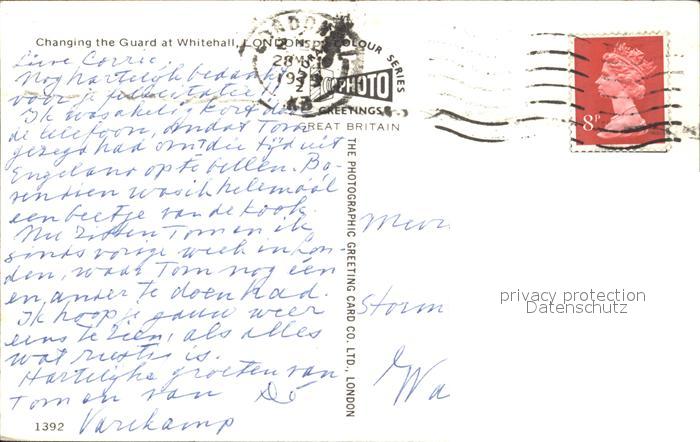 Changing the Guard at Whitehall, LONDON
COLOUR SERIES
PHOTO
GREETINGS
GREAT BRITAIN
8P
Lieve Corrie,
Nog hartelijk bedankt
voor je felicitatie!
Ik was akelig kort door
de telefoon, omdat Tom
gezegd had om die tijd uit
Engeland op te bellen. Bo-
vendien was ik helemaal
een beetje van de kook.
Nu zitten Tom en ik
sinds vorige week in Lon-
den, waar Tom nog één
en ander te doen had.
Ik hoop je gauw weer
eens te zien, als alles
wat rustig is.
Hartelijke groeten van
Tom en van Dó
Varekamp
1392
THE PHOTOGRAPHIC GREETING CARD CO. LTD., LONDON
Mevr
Storm
Wa
privacy protection
Datenschutz